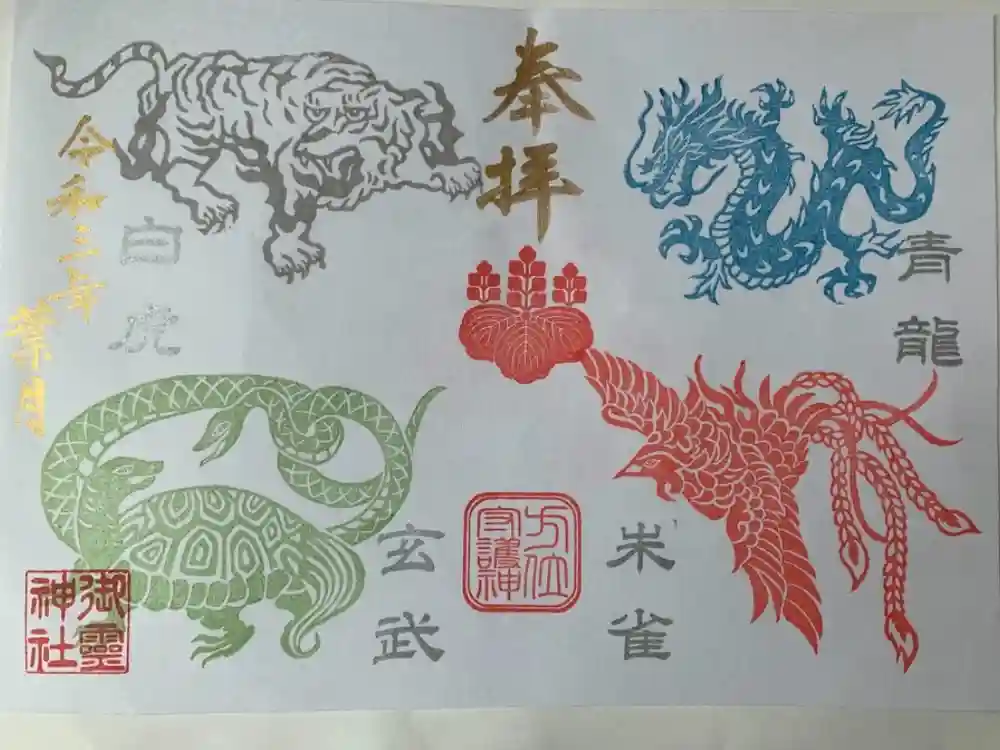 奉拝
青龍
朱雀
方位
守護神
玄武
白虎
令和三年
葉月
御霊
神社